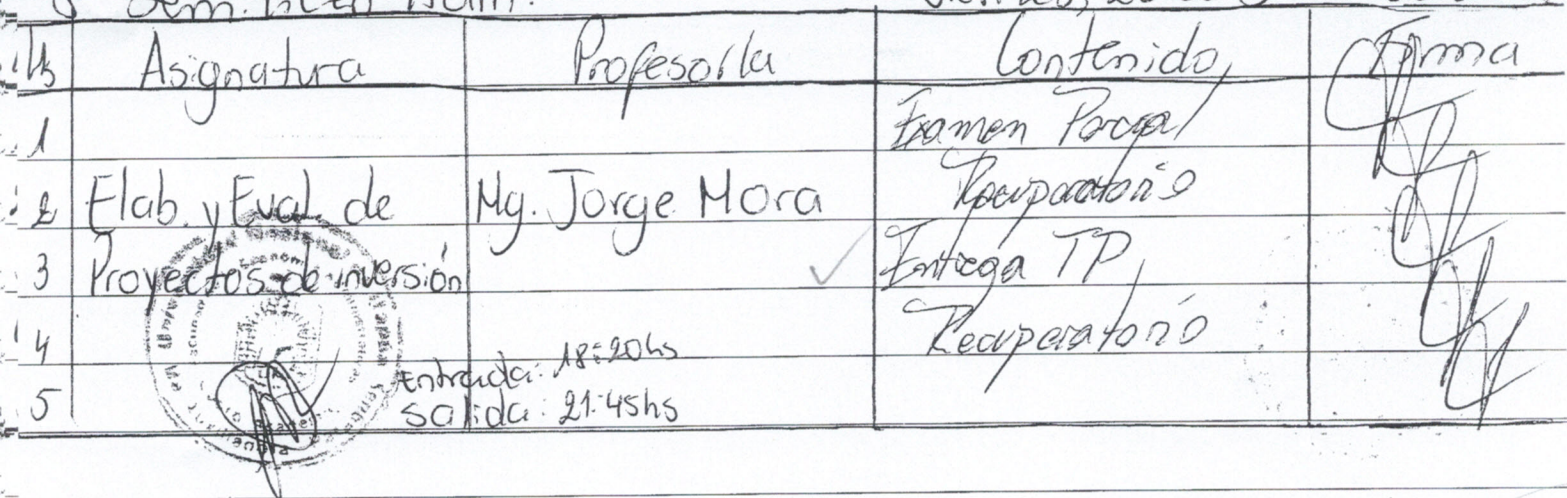 Asignatura Profesor/a Contenido Firma
1 Examen Parcial
2 Elab. y Eval. de Mg. Jorge Mora Recuperatorio
3 Proyectos de inversión Entrega TP
4 Recuperatorio
Entrada: 18:20hs
5 Salida: 21:45hs